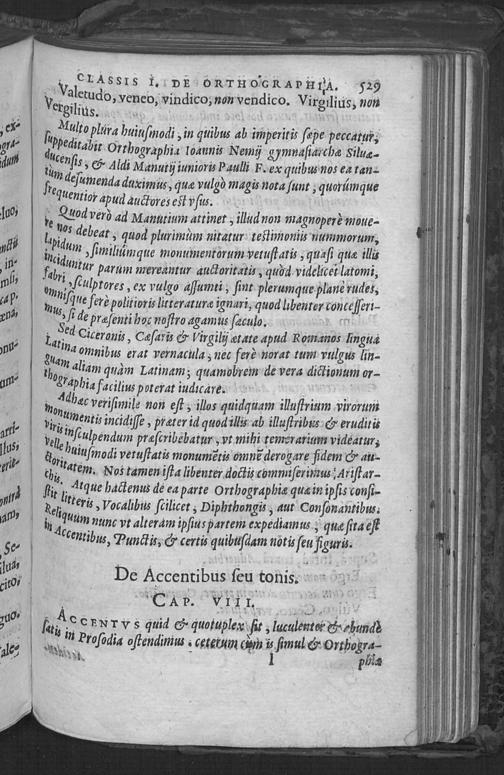 CLASSIS I. DE ORTHOGRAPHIA. 529
Valetudo, veneo, vindico, non vendico. Virgilius, non
Vergilius.
Multo plura huiusmodi, in quibus ab imperitis sæpe peccatur,
suppeditabit Orthographia Ioannis Nemij gymnasiarchæ Siluæ-
ducensis, & Aldi Manutij iunioris Paulli F. ex quibus nos ea tan-
tùm desumenda duximus, quæ vulgò magis nota sunt, quorúmque
frequentior apud auctores est vsus.
Quod verò ad Manutium attinet, illud non magnoperè moue-
re nos debeat, quod plurimùm nitatur testimoniis nummorum,
lapidum, similiúmque monumentorum vetustatis, quasi quæ illis
inciduntur parum mereantur auctoritatis, quòd videlicet latomi,
fabri, sculptores, ex vulgo assumti, sint plerumque planè rudes,
omnisque ferè politioris litteraturæ ignari, quod libenter concesseri-
mus, si de præsenti hoc nostro agamus sæculo.
Sed Ciceronis, Cæsaris & Virgilij ætate apud Romanos lingua
Latina omnibus erat vernacula, nec ferè norat tum vulgus lin-
guam aliam quàm Latinam; quamobrem de vera dictionum or-
thographia facilius poterat iudicare.
Adhæc verisimile non est, illos quidquam illustrium virorum
monumentis incidisse, præter id quod illis ab illustribus & eruditis
viris insculpendum præscribebatur, vt mihi temerarium videatur,
velle huiusmodi vetustatis monumētis omnē derogare fidem & au-
ctoritatem. Nos tamen ista libenter doctis commiserimus Aristar-
chis. Atque hactenus de ea parte Orthographiæ quæ in ipsis consi-
stit litteris, Vocalibus scilicet, Diphthongis, aut Consonantibus.
Reliquum nunc vt alteram ipsius partem expediamus, quæ sita est
in Accentibus, Punctis, & certis quibusdam notis seu figuris.
De Accentibus seu tonis.
CAP. VIII.
ACCENTVS quid & quotuplex sit, luculenter & abundè
satis in Prosodia ostendimus. ceterum cùm is simul & Orthogra-
I phiæ